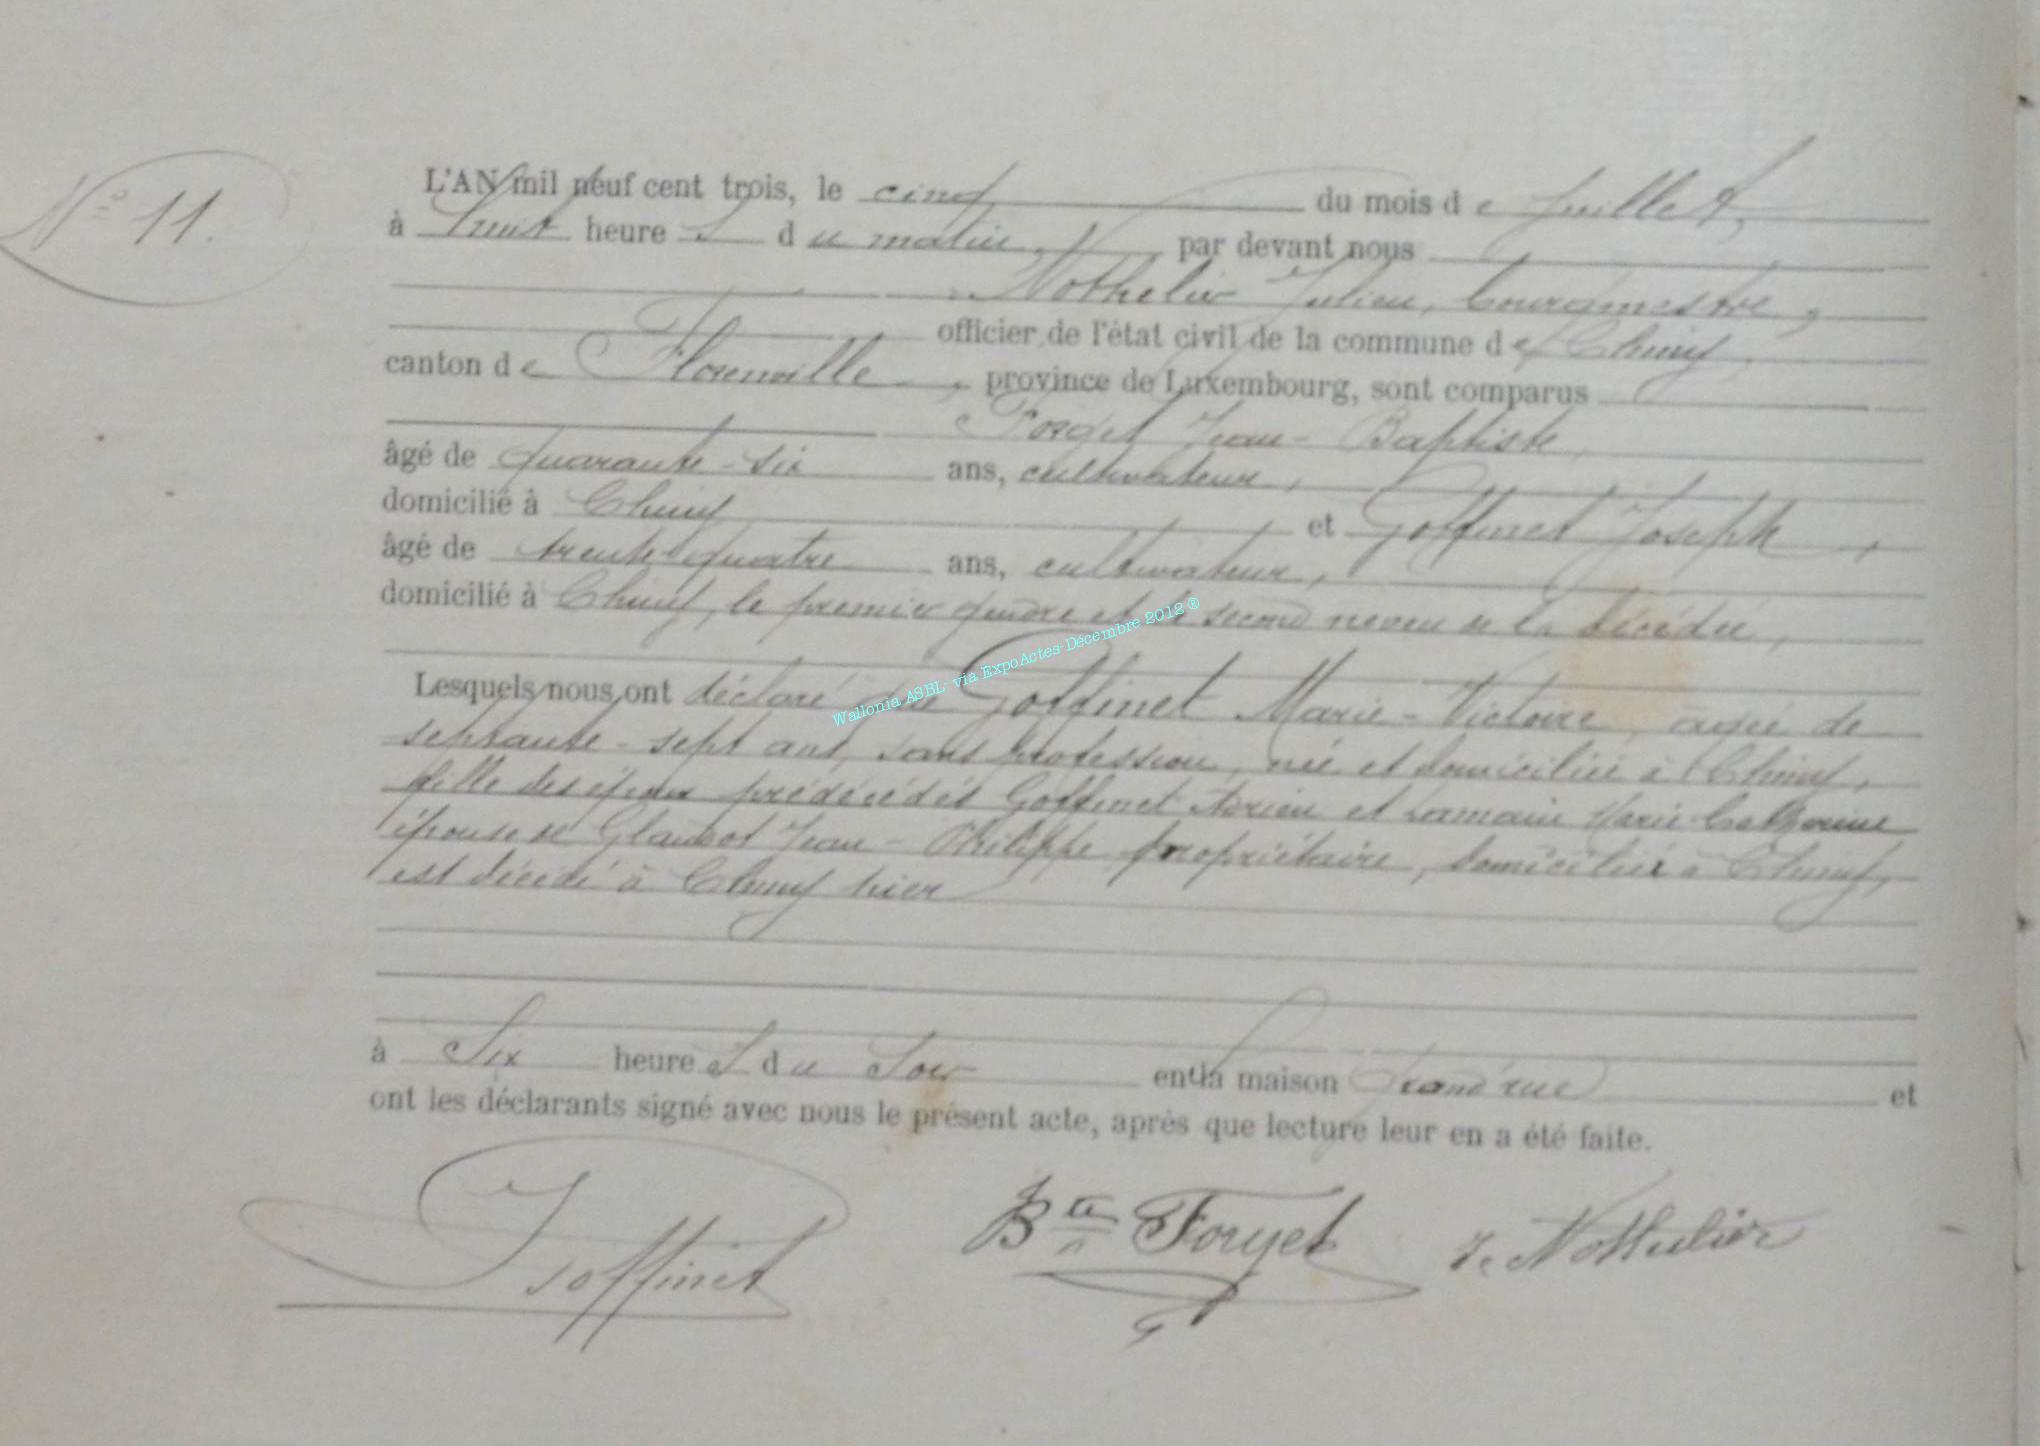 N° 11.
L'AN mil neuf cent trois, le cinq du mois de Juillet,
à huit heures du matin, par devant nous
Nothelier Julien, bourgmestre,
officier de l'état civil de la commune de Chiny,
canton de Florenville, province de Luxembourg, sont comparus
Forget Jean-Baptiste,
âgé de quarante-six ans, cultivateur,
domicilié à Chiny et Goffinet Joseph,
âgé de trente-quatre ans, cultivateur,
domicilié à Chiny, le premier gendre et le second neveu de la décédée,
Lesquels nous ont déclaré que Goffinet Marie-Victoire, agée de
septante-sept ans, sans profession, née et domiciliée à Chiny,
fille des époux prédécédés Goffinet Adrien et Lamain Marie-Catherine
épouse de Glaudot Jean-Philippe propriétaire, domicilié à Chiny,
est décédé à Chiny hier
à Six heures du Soir en la maison Grand'rue et
ont les déclarants signé avec nous le présent acte, après que lecture leur en a été faite.
J Goffinet Bte Forget J. Nothelier
Wallonia ASBL- via ExpoActes-Décembre 2012 ®